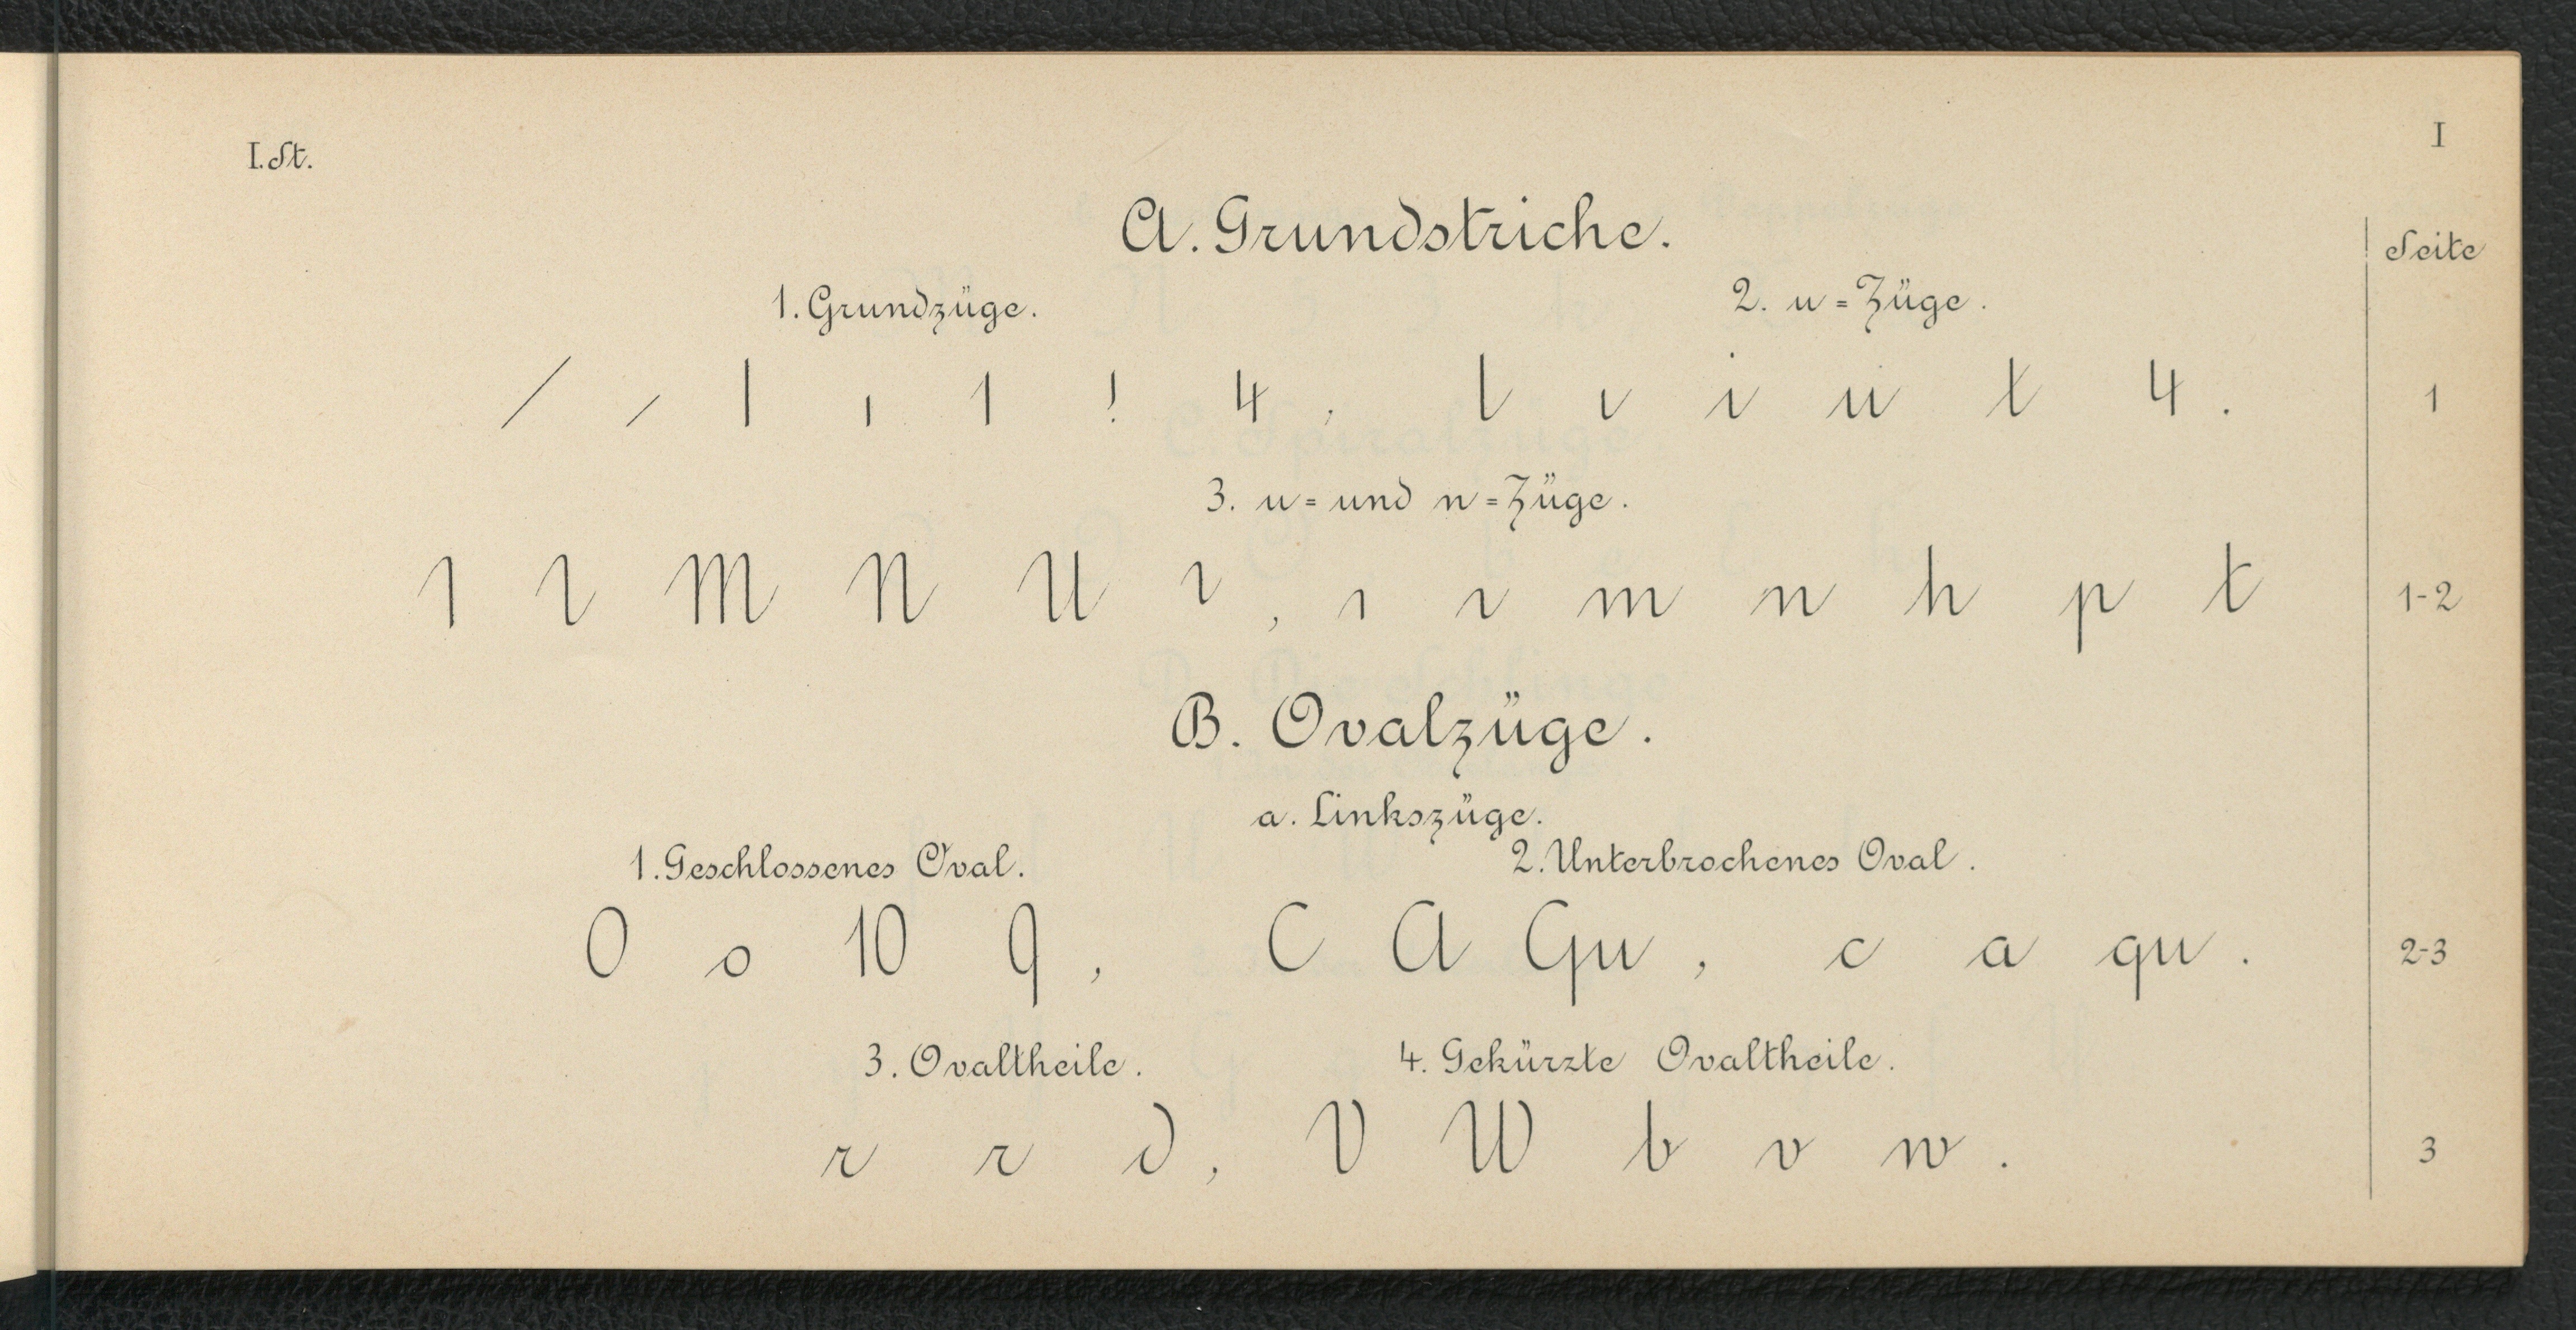 I
I. St.
A. Grundstriche.
Seite
1. Grundzüge. 2. u=Züge.
/ / l ı 1 ! 4, l ı i u t 4. 1
3. u= und n=Züge.
1 ı M N U ı, ı ı m n h p t 1-2
B. Ovalzüge.
a. Linkszüge.
1. Geschlossenes Oval. 2. Unterbrochenes Oval.
0 o 10 9, C A Qu, c a qu. 2-3
3. Ovaltheile. 4. Gekürzte Ovaltheile.
r r d, V W b v w. 3